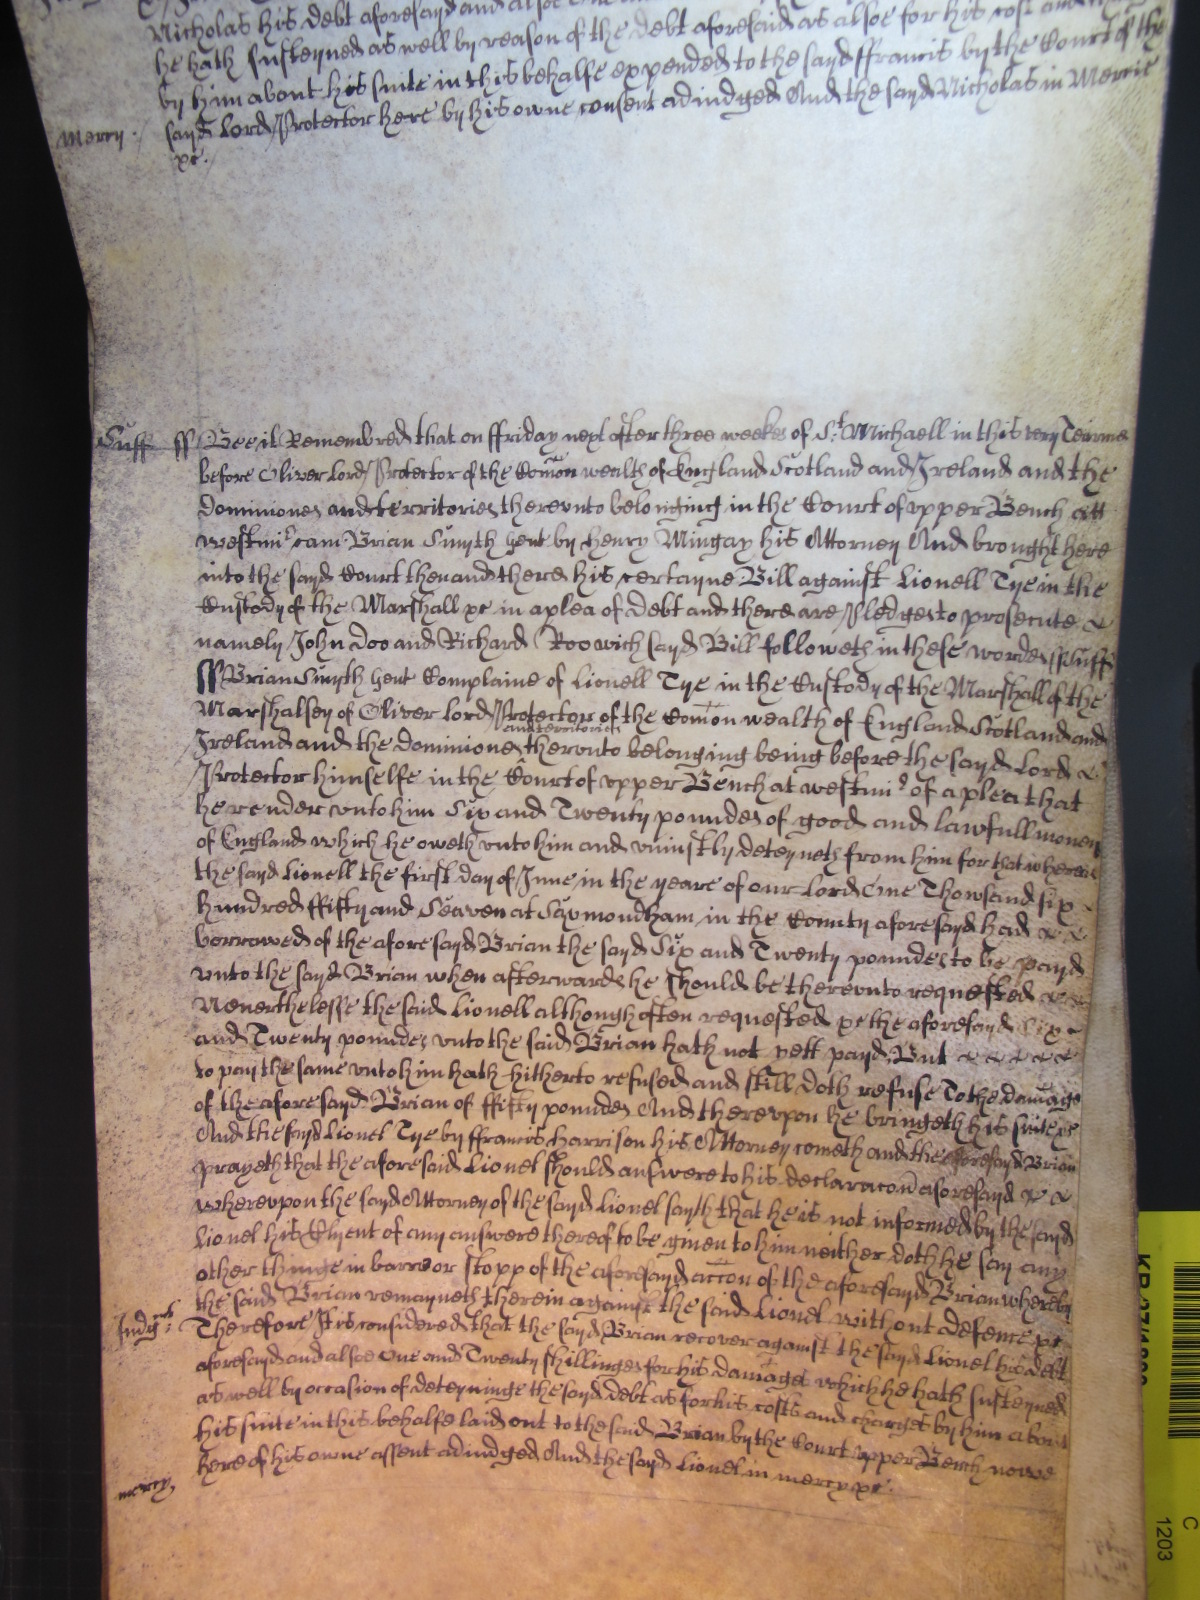 Nicholas his debt aforesayd and alsoe
he hath susteyned as well by reason of the debt aforesaid as alsoe for his cost and
by him about his suite in this behalfe expended to the sayd ffrancis by the Court of the
Mercy. sayd Lord Protector here by his owne consent adiudged And the sayd Nicholas in Mercie
xc.
Suff ss Bee it Remembred that on ffriday next after three weekes of St. Michaell in this very Tearme
before Oliver Lord Protector of the Comon wealth of England Scotland and Ireland and the
dominiones and territories therevnto belonging in the Court of vpper Bench att
westmr cam Brian Smyth gent by Henry Mingay his Attorney And brought here
into the sayd Court then and there his certayne Bill against Lionell Tye in the
Custody of the Marshall xc in a plea of debt and there are Pledges to prosecute &
namely John Doo and Richard Roo wich sayd Bill followeth in these wordes ss Suff
ss Brian Smyth gent Complaine of Lionell Tye in the Custody of the Marshall of the
Marshalsey of Oliver Lord Protector of the Comon wealth of England Scotland and
and territories
Ireland and the dominiones therunto belonging being before the sayd Lord &
Protector himselfe in the Court of vpper Bench at westmr of a plea that
he render vnto him Six and Twenty poundes of good and lawfull money
of England which he oweth vnto him and vniustly deteyneth from him for that whereas
the sayd Lionell the first day of June in the yeare of our Lord One Thowsand six
hundred ffifty and Seaven at Saxmondham in the County aforesayd had & &
borrowed of the aforesayd Brian the sayd Six and Twenty poundes to be payd
vnto the sayd Brian when afterwards he should be therevnto requested & &
Neuerthelesse the said Lionell although often requested xc the aforesayd Six
and Twenty poundes vnto the said Brian hath not yett payd But & & & & &
to pay the same vnto him hath hitherto refused and still doth refuse To the damage
of the aforesayd Brian of ffifty poundes And therevpon he bringeth his suite xc
And the sayd Lionel Tye by ffrancis Harrison his Attorney cometh and the aforesayd Brian
prayeth that the aforesaid Lionel should answere to his declaracon aforesayd & &
wherevpon the sayd Attorney of the sayd Lionel sayth that he is not informed by the sayd
Lionel his Clyent of any answere thereof to be giuen to him neither doth he say any
other thinge in barre or stopp of the aforesayd accon of the aforesayd Brian whereby
the said Brian remayneth therein against the said Lionel without defence xc
Iudgmt: Therefore It is considered that the sayd Brian recover against the sayd Lionel his debt
aforesayd and alsoe One and Twenty shillinges for his damages which he hath susteyned
as well by occasion of deteyninge the sayd debt as for his costs and charges by him about
his suite in this behalfe laid out to the said Brian by the Court vpper Bench nowe
here of his owne assent adiudged And the sayd Lionel in mercy xc.
mercy,
C
1203